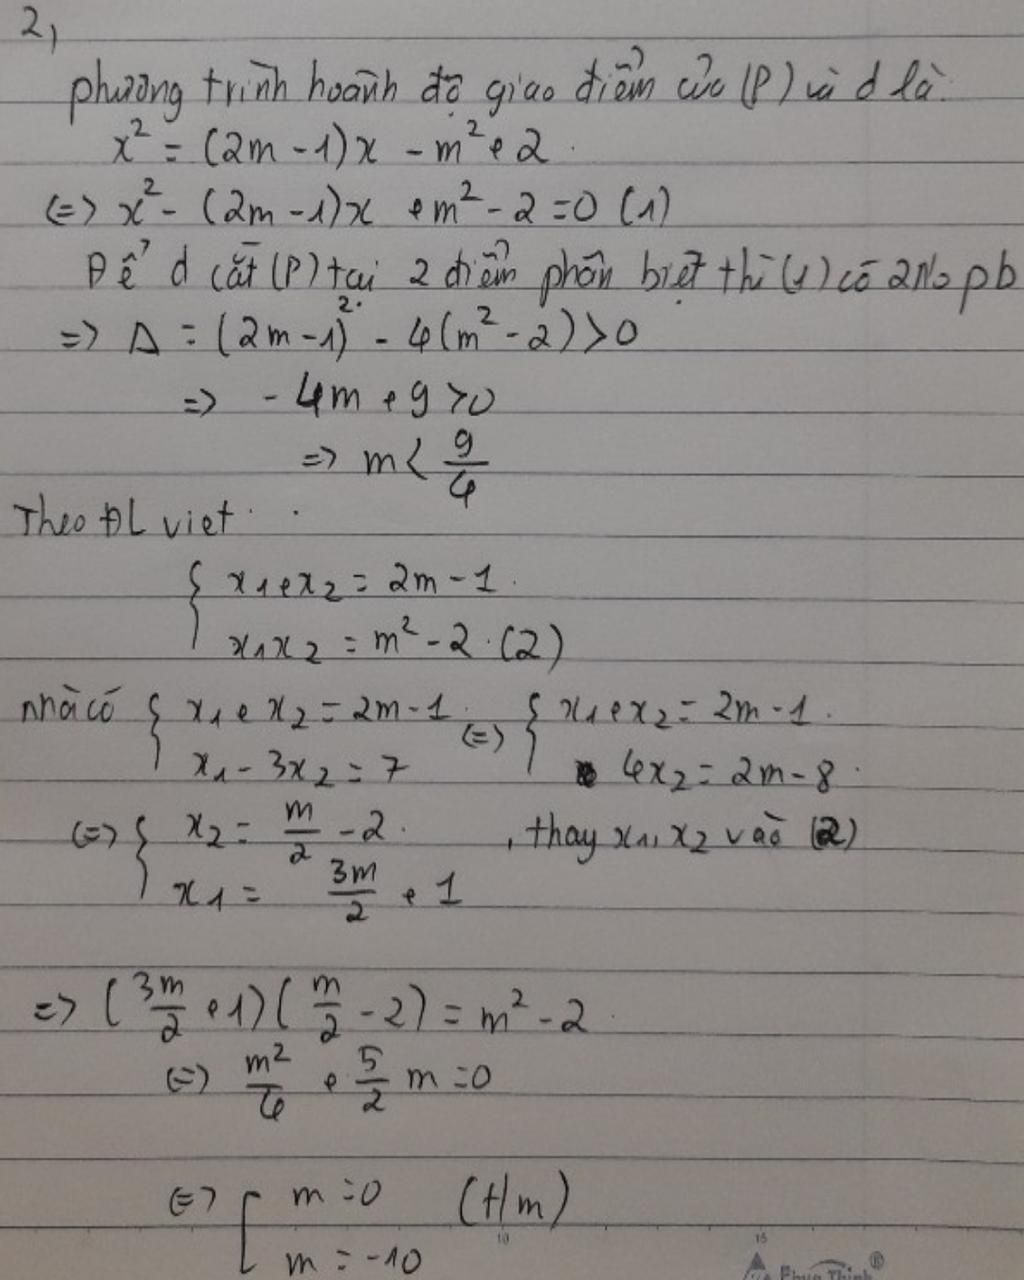 2,
phương trình hoành độ giao điểm của (P) và d là:
x² = (2m - 1)x - m² + 2
(=) x² - (2m - 1)x + m² - 2 = 0 (1)
Để d cắt (P) tại 2 điểm phân biệt thì (1) có 2 No pb
=> Δ = (2m - 1)² - 4(m² - 2) > 0
=> - 4m + 9 > 0
=> m < 9/4
Theo ĐL viet
{ x₁ + x₂ = 2m - 1
x₁x₂ = m² - 2 (2)
mà có { x₁ + x₂ = 2m - 1 (=) { x₁ + x₂ = 2m - 1
x₁ - 3x₂ = 7 4x₂ = 2m - 8
(=) { x₂ = m/2 - 2 , thay x₁, x₂ vào (2)
x₁ = 3m/2 + 1
=> (3m/2 + 1)(m/2 - 2) = m² - 2
(=) m²/4 + 5/2 m = 0
(=) [ m = 0 (t/m)
m = -10
10 15